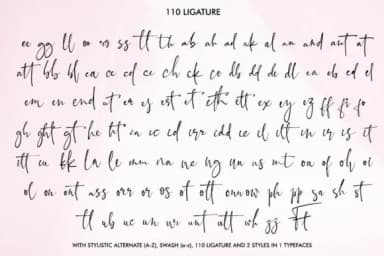 110 LIGATURE
ee gg ll oo rr ss tt th ab ah ad ak al an and ant at
att bb bl ca cc cd ce ch ck co db dd de dl ea eb ed el
em en end er es est et ett ex ey ez ff fi fo
gh ght gt he ht ia ic id irr idd ie il ilt in ir is it
itt iu kk la le mm na ne ng un us mt oa of oh oi
ol om ont ass orr or os ot ott ph pp sa sh st
tt ub uc un ur unt utt wh zz Ft
WITH STYLISTIC ALTERNATE (A-Z), SWASH (a-z), 110 LIGATURE AND 2 STYLES IN 1 TYPEFACES